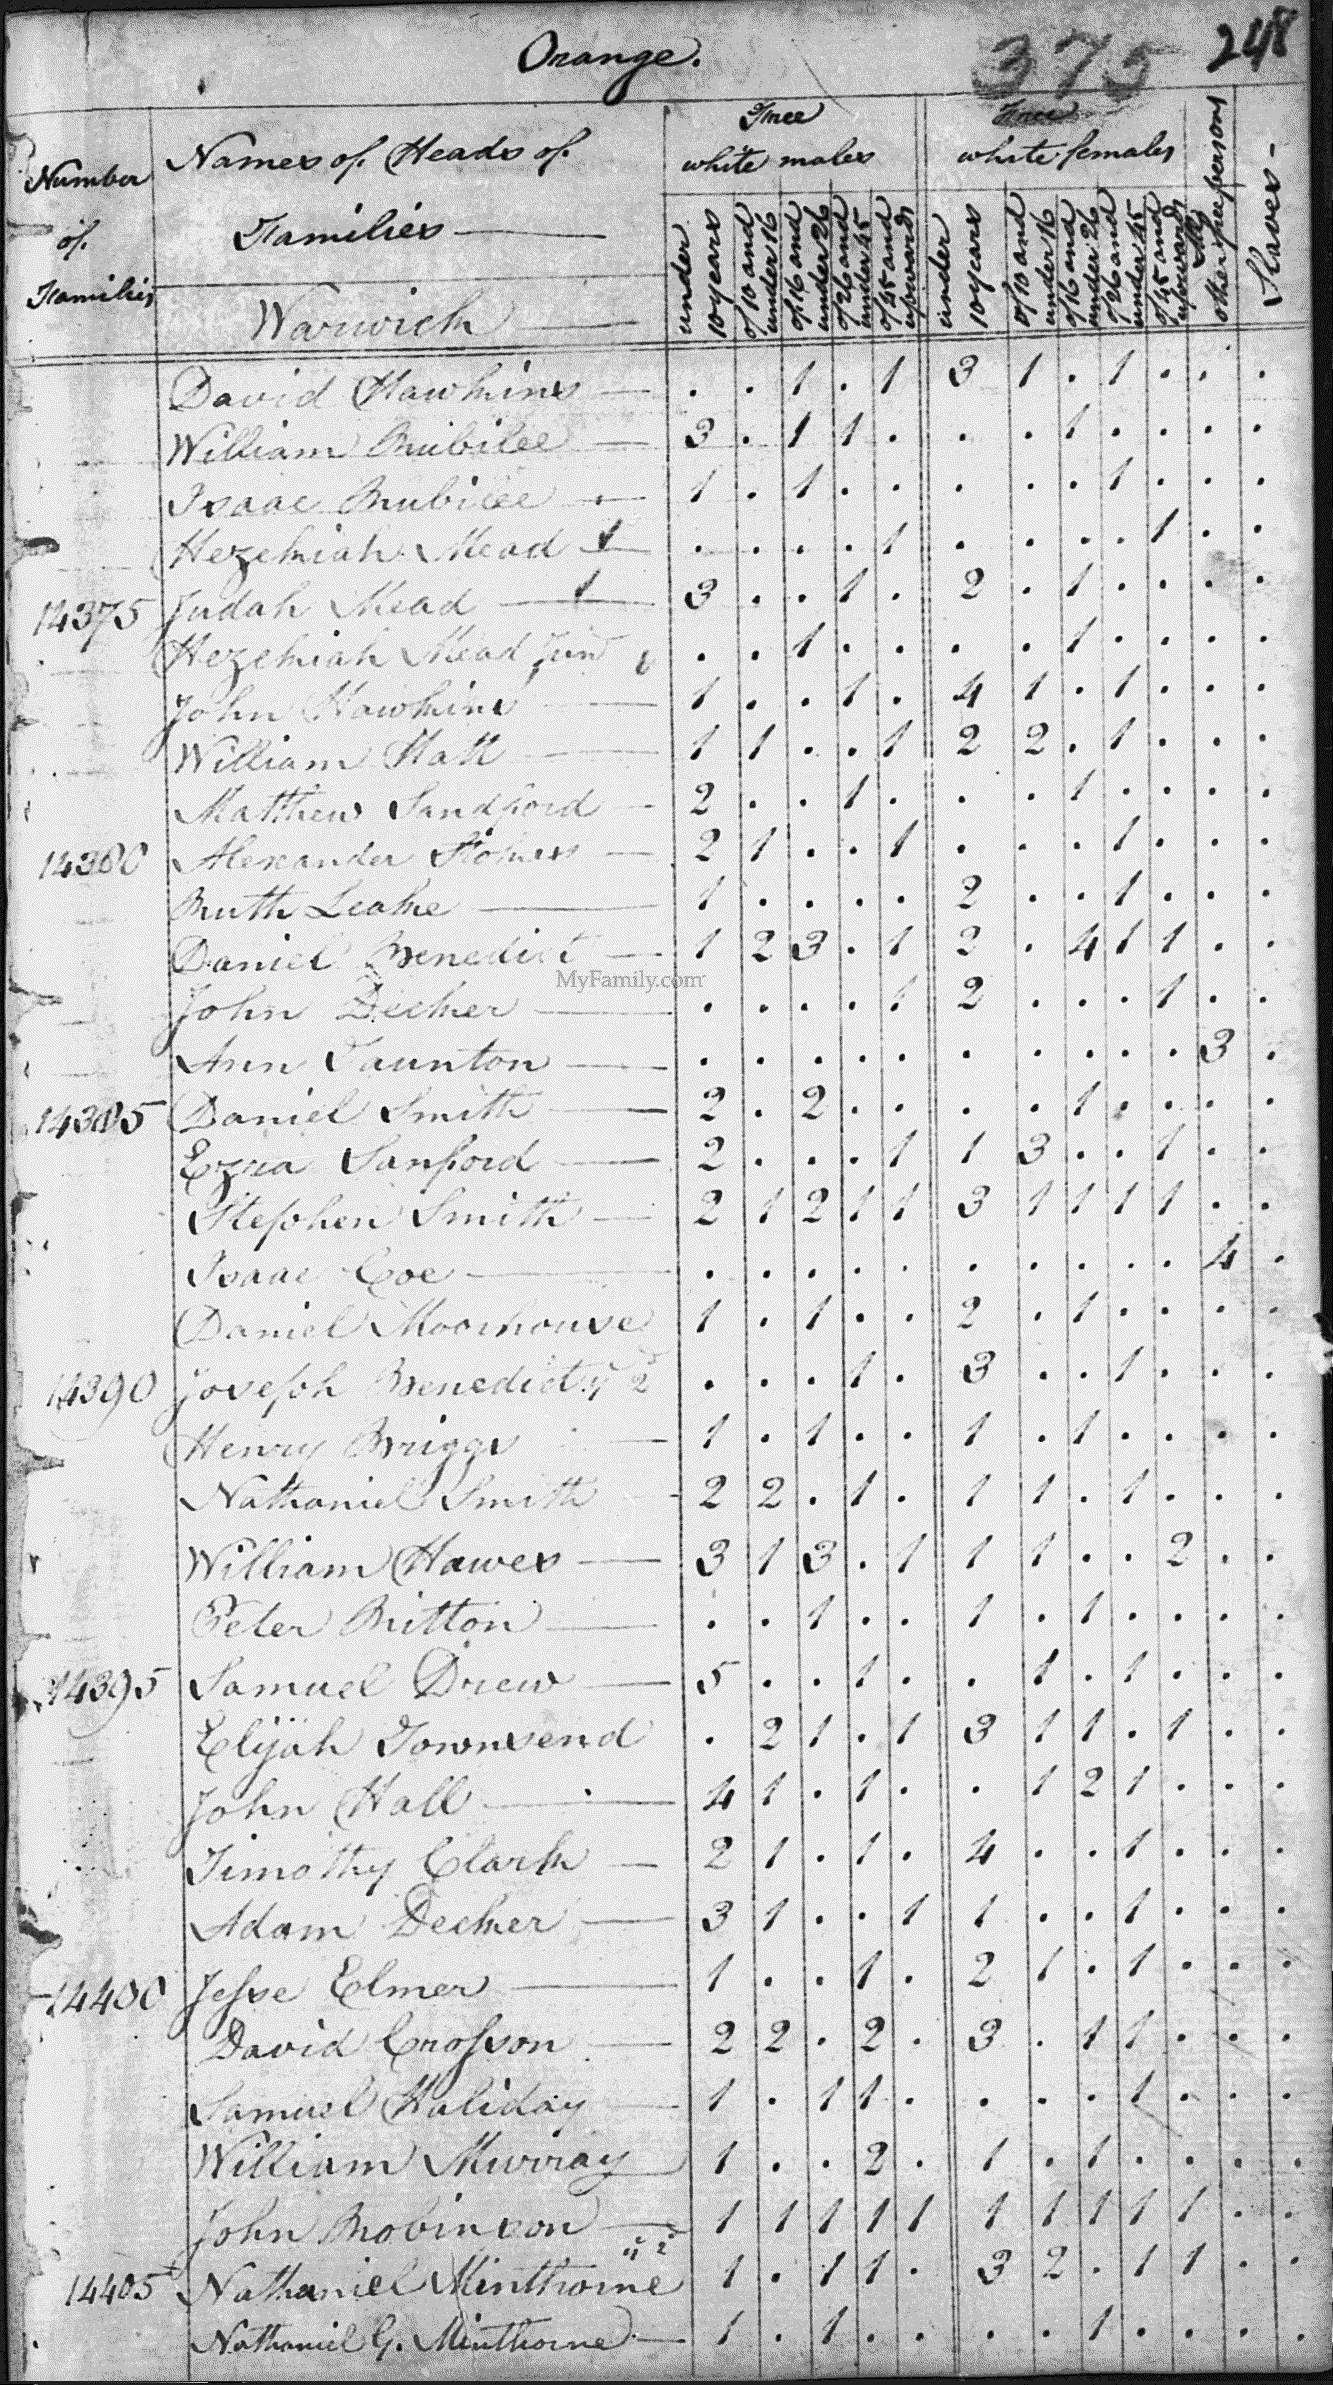 Orange.
375 248
Number of Families
Names of Heads of Families
Warwick
Free white males
Free white females
under 10 years
of 10 and under 16
of 16 and under 26
of 26 and under 45
of 45 and upwards
under 10 years
of 10 and under 16
of 16 and under 26
of 26 and under 45
of 45 and upwards
other free persons
Slaves
David Hawkins — . . 1 . 1 3 1 . 1 . . .
William — 3 . 1 1 . . . 1 . . . .
Isaac — 1 . 1 . . . . . 1 . . .
Hezekiah Mead — . . . . 1 . . . . 1 . .
14375 Judah Mead — 3 . . 1 . 2 . 1 . . . .
Hezekiah Mead Junr . . 1 . . . . 1 . . . .
John Hawkins — 1 . . 1 . 4 1 . 1 . . .
William Hall — 1 1 . . 1 2 2 . 1 . . .
Matthew Sandford — 2 . . 1 . . . 1 . . . .
14380 Alexander — 2 1 . . 1 . . . 1 . . .
Ruth Leake — 1 . . . . 2 . . 1 . . .
Daniel Benedict — 1 2 3 . 1 2 . 4 1 1 . .
MyFamily.com
John Decker — . . . . 1 2 . . . 1 . .
Ann Taunton — . . . . . . . . . . 3 .
14385 Daniel Smith — 2 . 2 . . . . 1 . . . .
Ezra Sanford — 2 . . . 1 1 3 . . 1 . .
Stephen Smith — 2 1 2 1 1 3 1 1 1 1 . .
Isaac Coe — . . . . . . . . . . 4 .
Daniel Moorhouse 1 . 1 . . 2 . 1 . . . .
14390 Joseph Benedict ye 2d . . . 1 . 3 . . 1 . . .
Henry Briggs — 1 . 1 . . 1 . 1 . . . .
Nathaniel Smith — 2 2 . 1 . 1 1 . 1 . . .
William Hawes — 3 1 3 . 1 1 1 . . 2 . .
Peter Britton — . . 1 . . 1 . 1 . . . .
14395 Samuel Drew — 5 . . 1 . . 1 . 1 . . .
Elijah Townsend . 2 1 . 1 3 1 1 . 1 . .
John Hall — 4 1 . 1 . . 1 2 1 . . .
Timothy Clark — 2 1 . 1 . 4 . . 1 . . .
Adam Decker — 3 1 . . 1 1 . . 1 . . .
14400 Jesse Elmer — 1 . . 1 . 2 1 . 1 . . .
David Crosson — 2 2 . 2 . 3 . 1 1 . . .
Samuel Haliday — 1 . 1 1 . . . . 1 . . .
William Murray 1 . . 2 . 1 . 1 . . . .
John Robinson — 1 1 1 1 1 1 1 1 1 1 . .
14405 Nathaniel Minthorne 1 . 1 1 . 3 2 . 1 1 . .
Nathaniel G. Minthorne — 1 . 1 . . . . 1 . . . .